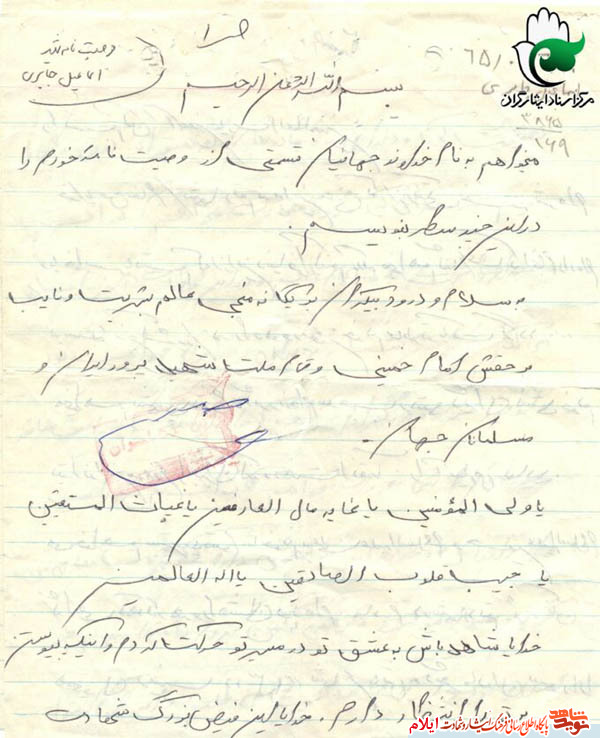 وصیت نامه شهید
اسماعیل جابری
۶۵/۰
۳۸۶۵
۱۶۹
مرکز اسناد ایثارگران
بسم الله الرحمن الرحیم
میخواهم به نام خداوند جهانیان قسمتی از وصیت نامه خودم را
در این چند سطر بنویسم.
به سلام و درود بیکران بر یگانه منجی عالم بشریت و نایب
بر حقش امام خمینی و تمام ملت شهید پرور ایران و
مسلمانان جهان.
یا ولی المؤمنین یا غایه مال العارفین یا غیاث المستغیثین
یا حبیب قلوب الصادقین یا اله العالمین
خدایا شاهد باش به عشق تو در مسیر تو حرکت کردم و اینکه پیوستن
دارم. خدایا این فیض بزرگ شهادت
نوید شاهد پایگاه اطلاع رسانی فرهنگ ایثار و شهادت ایلام